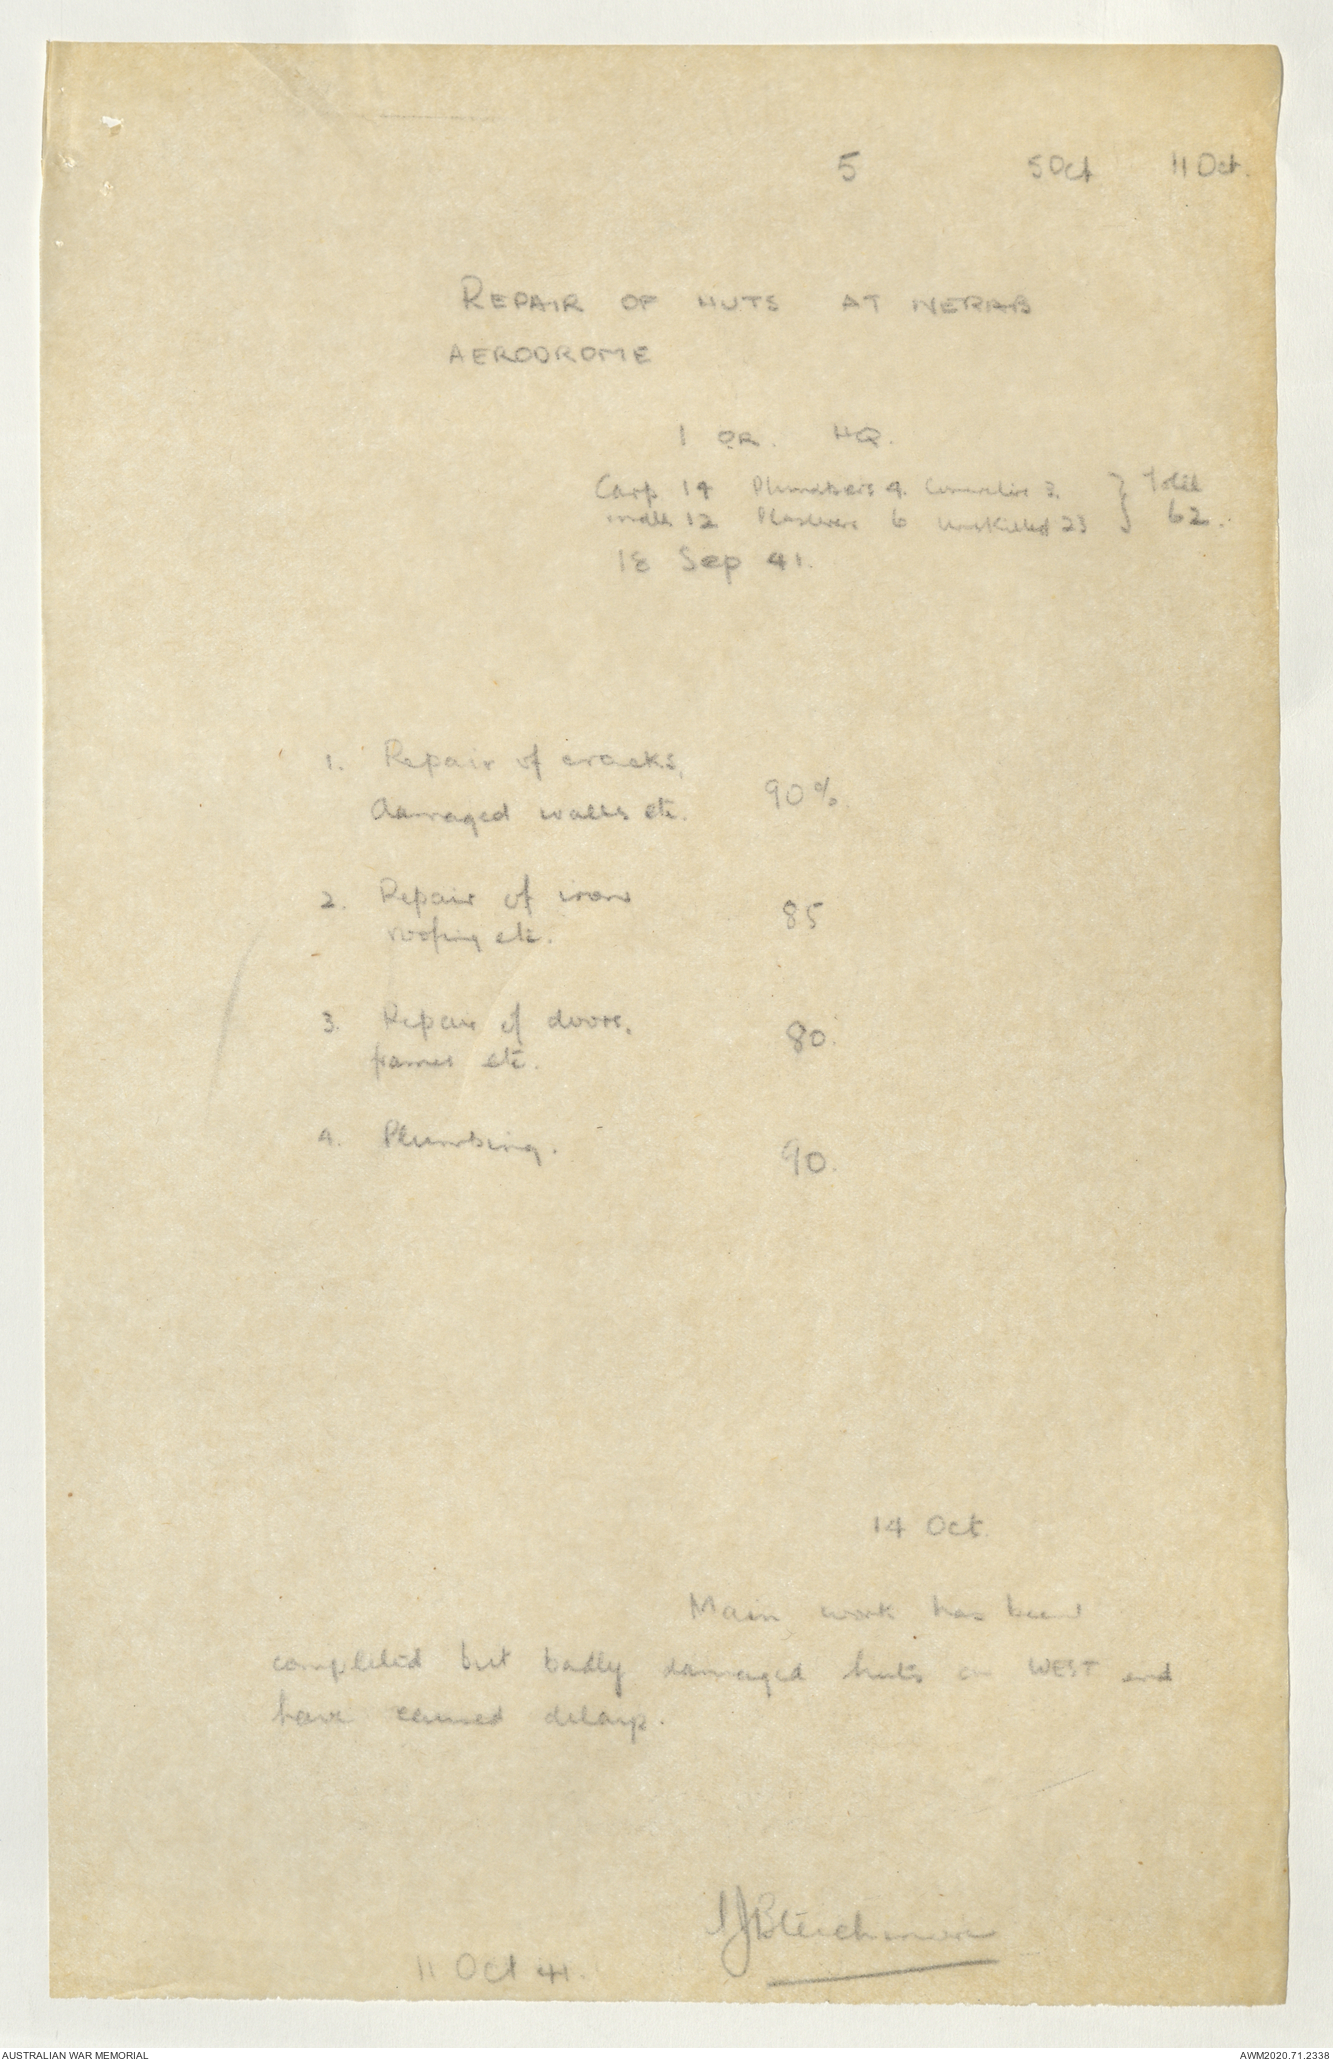 5 5 Oct 11 Oct.
REPAIR OF HUTS AT NERAB
AERODROME
1 OR. HQ.
Carp 14 Plumbers 4. 3. } Total
12 Plasterers 6 Unskilled 23 } 62.
18 Sep 41.
1. Repair of cracks,
damaged walls etc. 90%
2. Repair of iron
roofing etc. 85
3. Repair of doors,
frames etc. 80.
4. Plumbing. 90.
14 Oct
Main work has been
completed but badly damaged huts on WEST end
have caused delay.
11 Oct 41.
AUSTRALIAN WAR MEMORIAL
AWM2020.71.2338